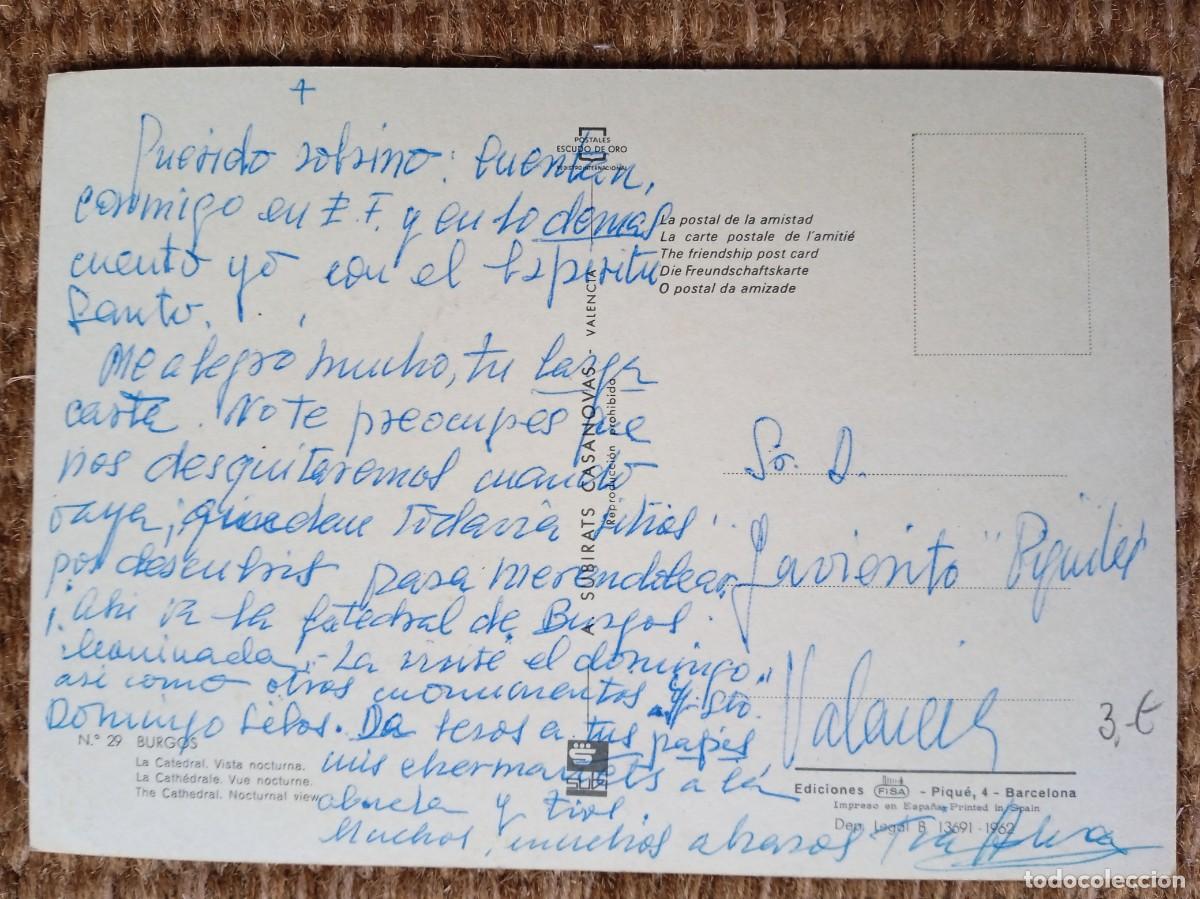 +
Querido sobrino: Cuentan,
conmigo en E. F. y en lo demás
cuento yo con el Espíritu
Santo. . .
Me alegro mucho, tu larga
carta. No te preocupes que
nos desquitaremos cuando
vaya, quedan todavía sitios
por descubrir para merendolear,
¡Ahí va la Catedral de Burgos
iluminada. - La visité el domingo
así como otros monumentos y Sto.
Domingo Silos. Da besos a tus papás
mis hermanets a la
abuela y tíos.
Muchos, muchos abrazos Tía
POSTALES
ESCUDO DE ORO
REGISTRO INTERNACIONAL
A SUBIRATS CASANOVAS - VALENCIA
Reproducción prohibida
La postal de la amistad
La carte postale de l'amitié
The friendship post card
Die Freundschaftskarte
O postal da amizade
Sr. D.
Javierito
Valencia
3,€
N.º 29 BURGOS
La Catedral. Vista nocturna.
La Cathédrale. Vue nocturne.
The Cathedral. Nocturnal view.
Ediciones FISA - Piqué, 4 - Barcelona
Impreso en España Printed in Spain
Dep. Legal B. 13691 - 1962
todocoleccion